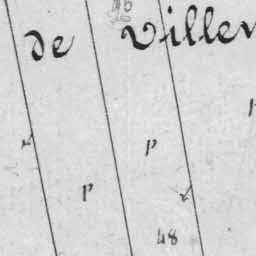 de Villen
p
p
48